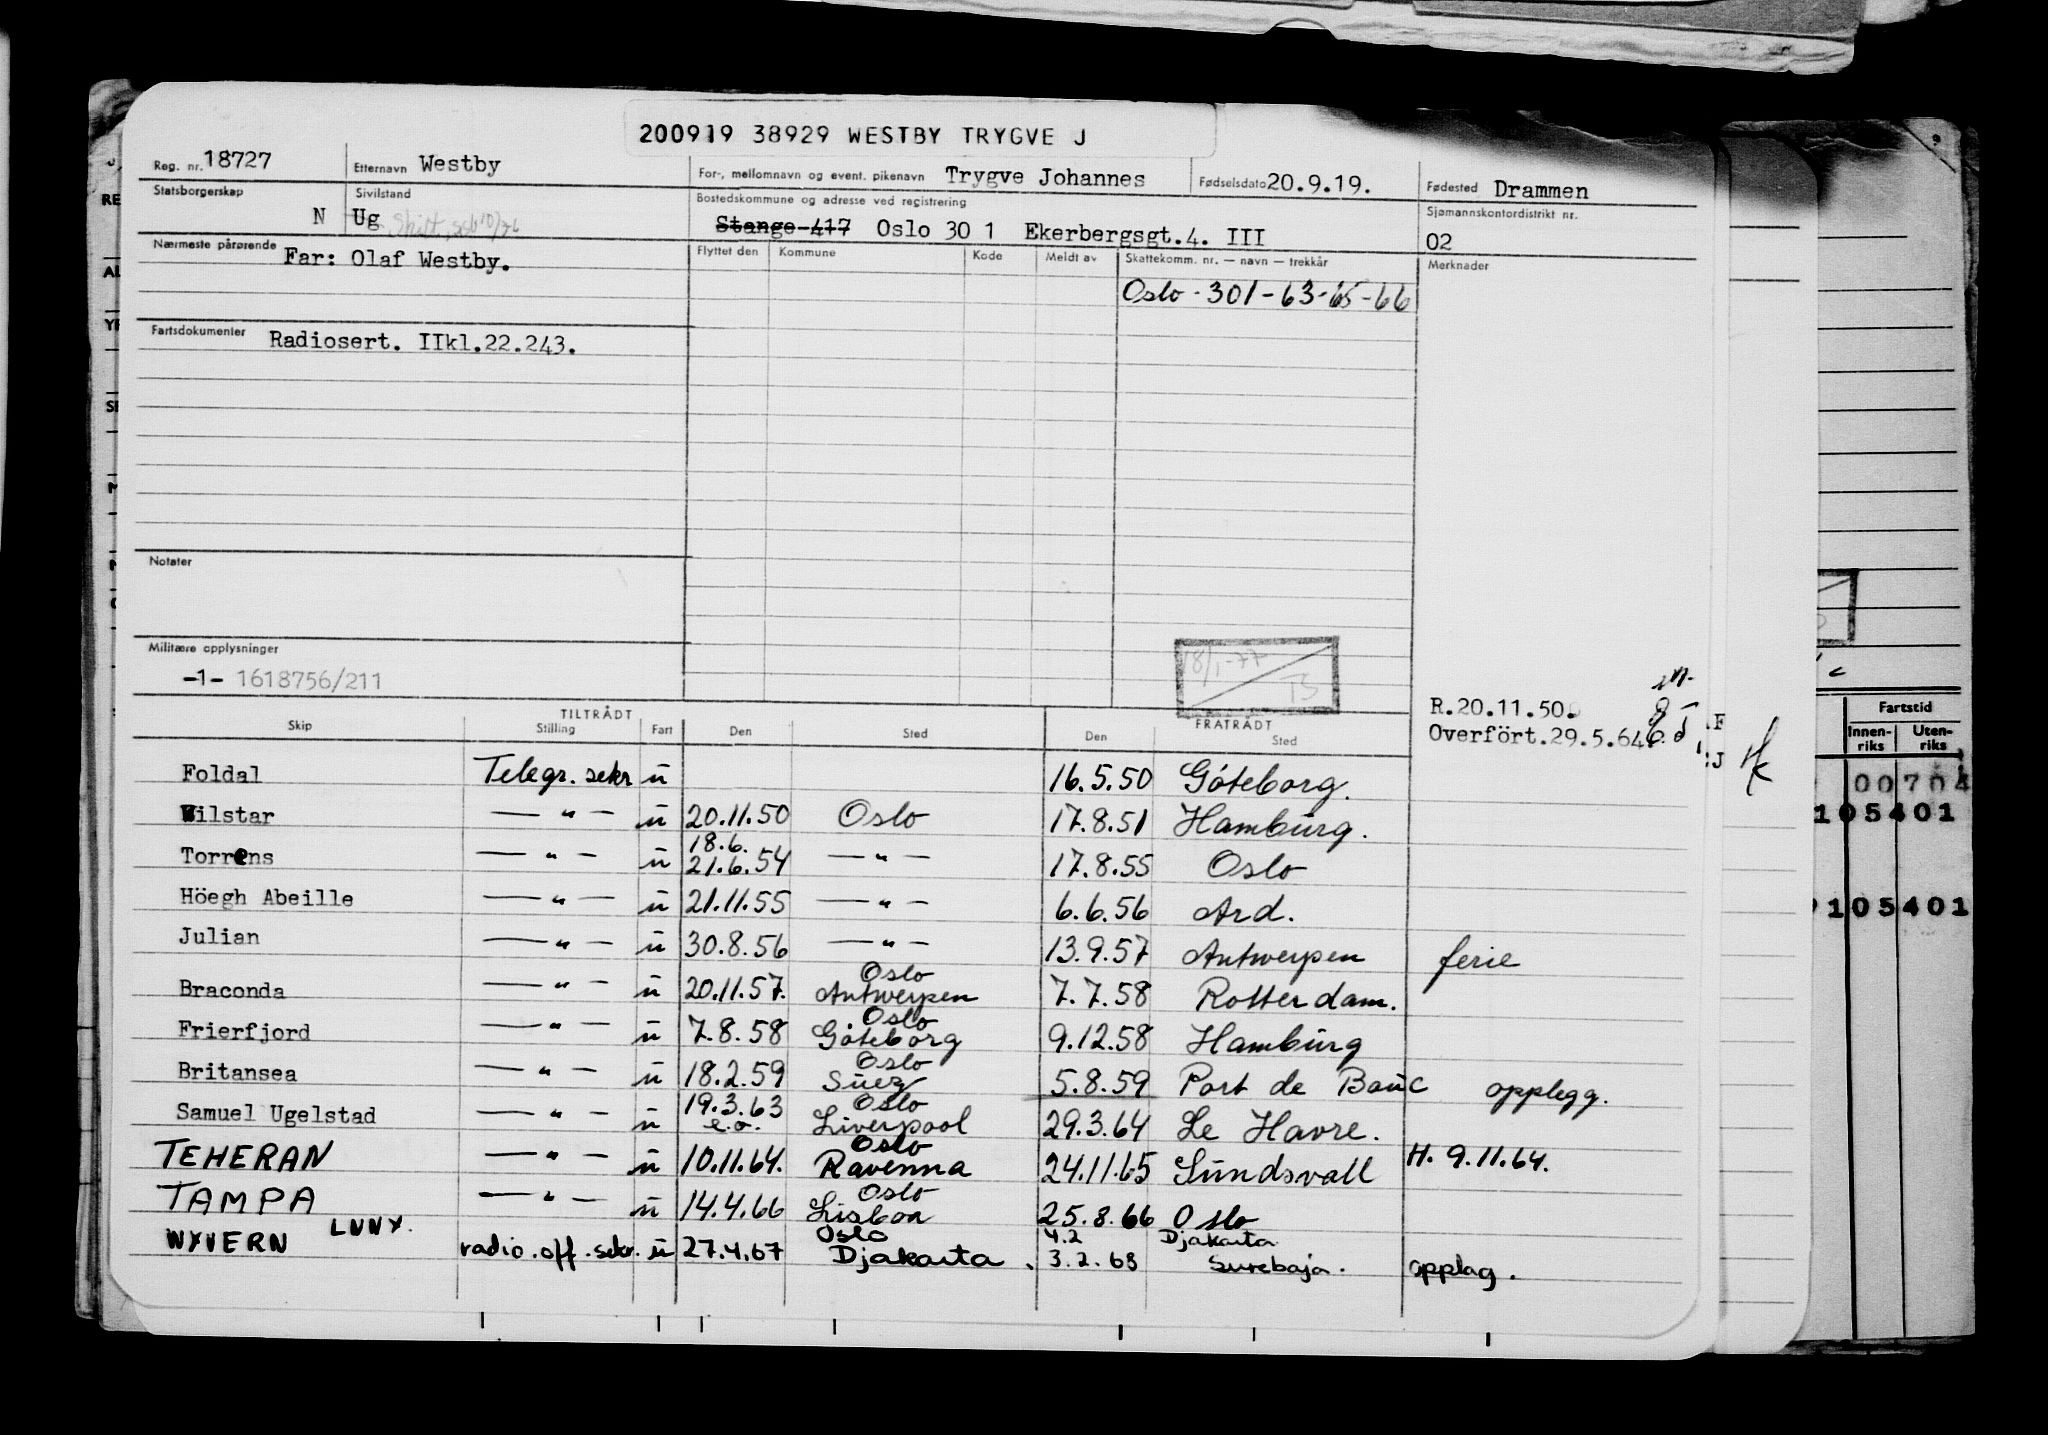 200919 38929 WESTBY TRYGVE J
Reg. nr. 18727 Etternavn Westby For-, mellomnavn og event. pikenavn Trygve Johannes Fødselsdato 20.9.19. Fødested Drammen
Statsborgerskap Sivilstand Bostedskommune og adresse ved registrering Sjømannskontordistrikt nr.
N Ug Stange 417 Oslo 30 1 Ekerbergsgt.4. III 02
Nærmeste pårørende Far: Olaf Westby. Flyttet den Kommune Kode Meldt av Skattekomm. nr. — navn — trekkår Merknader
Oslo - 301 - 63-65-66
Fartsdokumenter Radiosert. IIkl.22.243.
Notater
Militære opplysninger
-1- 1618756/211
18/1-77
TS
R.20.11.50.
Overfört.29.5.64.
TILTRÅDT FRATRÅDT
Skip Stilling Fart Den Sted Den Sted
Foldal Telegr. sekr u 16.5.50 Göteborg.
Wilstar — " — u 20.11.50 Oslo 17.8.51 Hamburg.
18.6.
Torrens — " — u 21.6.54 — " — 17.8.55 Oslo
Höegh Abeille — " — u 21.11.55 — " — 6.6.56 Ard.
Julian — " — u 30.8.56 — " — 13.9.57 Antwerpen ferie
Oslo
Braconda — " — u 20.11.57. Antwerpen 7.7.58 Rotterdam.
Oslo
Frierfjord — " — u 7.8.58 Göteborg 9.12.58 Hamburg
Oslo
Britansea — " — u 18.2.59 Suez 5.8.59 Port de Bouc opplegg.
19.3.63 Oslo
Samuel Ugelstad — " — u e.o. Liverpool 29.3.64 Le Havre.
Oslo
TEHERAN — " — u 10.11.64. Ravenna 24.11.65 Sundsvall H. 9.11.64.
Oslo
TAMPA — " — u 14.4.66 Lisboa 25.8.66 Oslo
LNNX. Oslo 4.2 Djakarta
WYVERN radio.off.sekr. u 27.4.67 Djakarta. 3.2.68 Surebaja. opplag.
Fartstid
Innen-riks Uten-riks
00704
105401
9105401